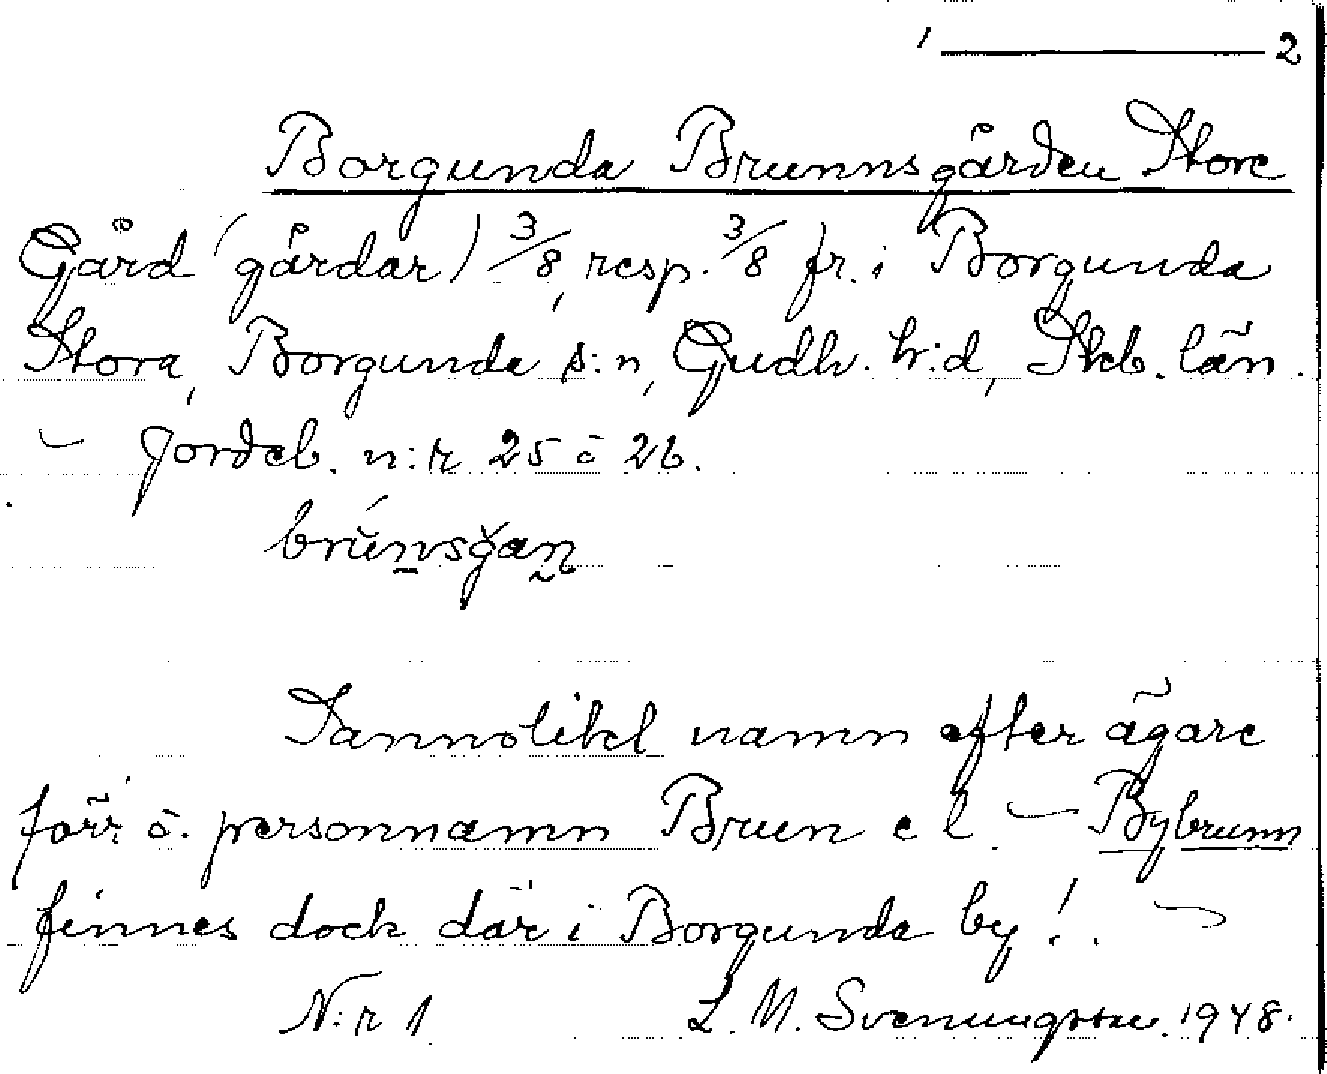 1 ——— 2
Borgunda Brunnsgården Store
Gård (gårdar) 3/8, resp. 3/8 fr. i Borgunda
Stora, Borgunda s:n, Gudh. h:d, Skb. län.
– Jordeb. n:r 25 o 26.
Sannolikt namn efter ägare
förr o. personnamn Brun el. – Bybrunn
finnes dock där i Borgunda by! –
N:r 1 L. M. Svenungsson. 1948.